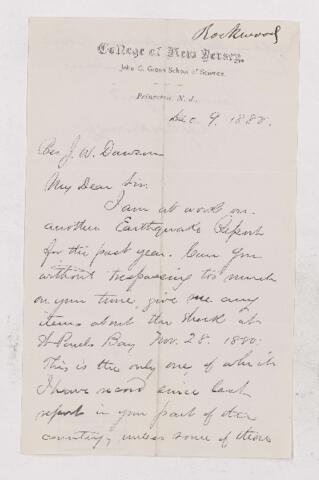 Rockwood
College of New Jersey,
John C. Green School of Science.
Princeton, N. J.,
Dec 9. 1880.
J. W. Dawson
My Dear Sir.
I am at work on
another Earthquake Report
for the past year. Can you
without trespassing too much
on your time, give me any
items about the shock at
St Pauls Bay Nov. 28. 1880.
This is the only one, of which
I have record since last
report in your part of the
country, unless some of those